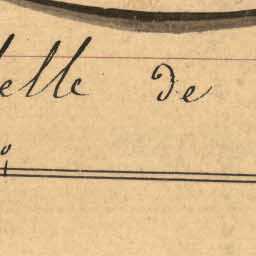 elle de
0